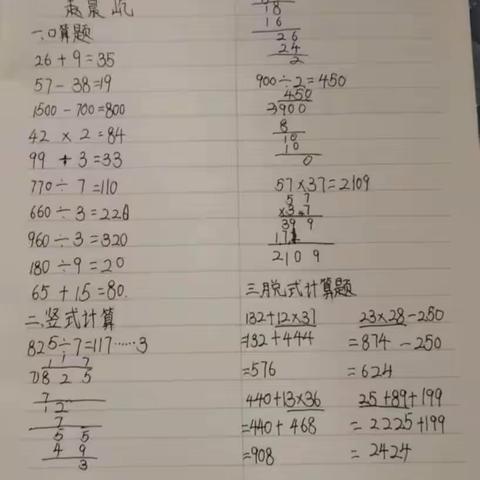 一、口算题
26+9=35
57-38=19
1500-700=800
42×2=84
99+3=33
770÷7=110
660÷3=220
960÷3=320
180÷9=20
65+15=80.
二、竖式计算
825÷7=117……3
1 1 7
7)8 2 5
7
1 2
7
5 5
4 9
3
18
16
26
24
2
900÷2=450
450
2)900
8
10
10
0
57×37=2109
5 7
×3 7
39 9
171
210 9
三、脱式计算题
132+12×37
=132+444
=576
23×28-250
=874-250
=624
440+13×36
=440+468
=908
25+89+199
=2225+199
=2424